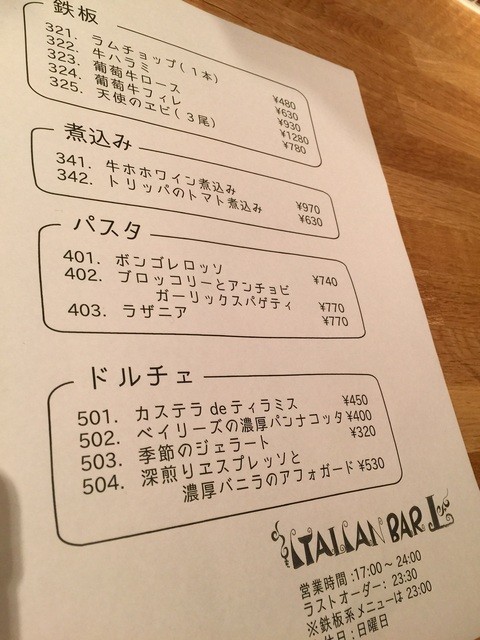 鉄板
321. ラムチョップ(1本) ¥480
322. 牛ハラミ ¥630
323. 葡萄牛ロース ¥930
324. 葡萄牛フィレ ¥1280
325. 天使のエビ(3尾) ¥780
煮込み
341. 牛ホホワイン煮込み ¥970
342. トリッパのトマト煮込み ¥630
パスタ
401. ボンゴレロッソ ¥740
402. ブロッコリーとアンチョビ
ガーリックスパゲティ ¥770
403. ラザニア ¥770
ドルチェ
501. カステラdeティラミス ¥450
502. ベイリーズの濃厚パンナコッタ ¥400
503. 季節のジェラート ¥320
504. 深煎りエスプレッソと
濃厚バニラのアフォガード ¥530
ITALIAN BAR
営業時間:17:00～24:00
ラストオーダー:23:30
※鉄板系メニューは23:00
:日曜日